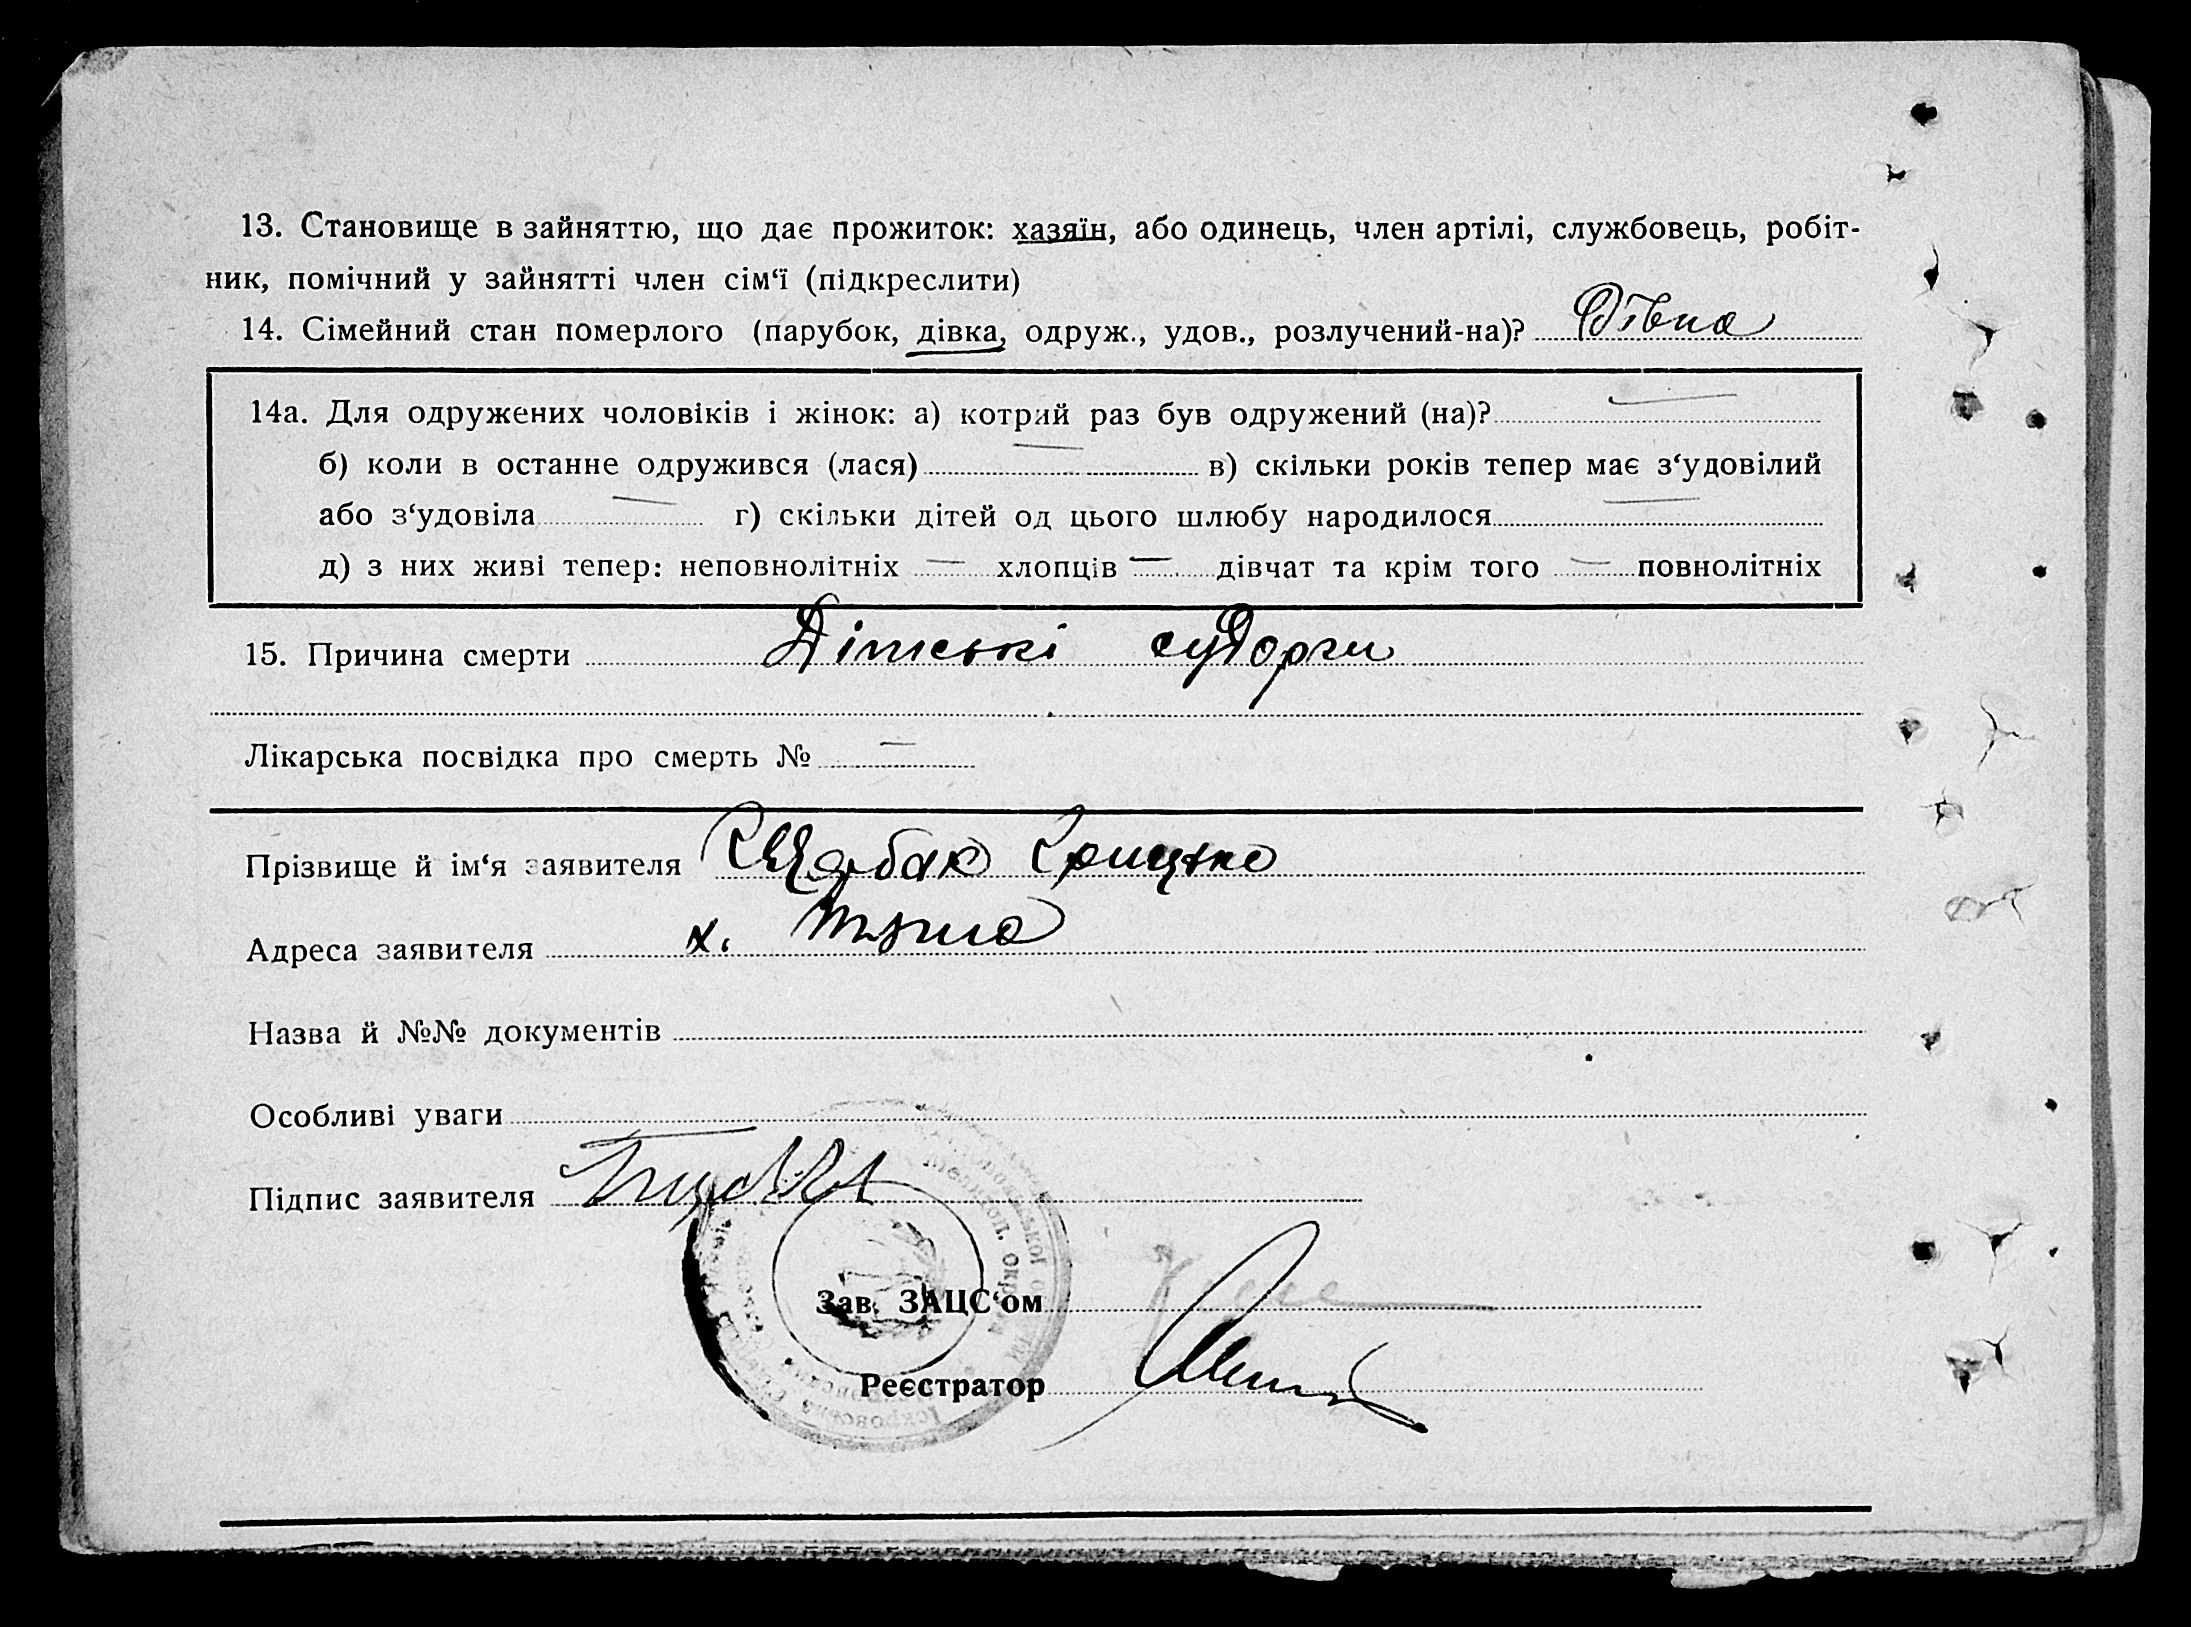 13. Становище в зайняттю, що дає прожиток: хазяїн, або одинець, член артілі, службовець, робіт-
ник, помічний у зайнятті член сім‘ї (підкреслити)
14. Сімейний стан померлого (парубок, дівка, одруж., удов., розлучений-на)? Дівка
14а. Для одружених чоловіків і жінок: а) котрий раз був одружений (на)? —
б) коли в останне одружився (лася) — в) скільки років тепер має з‘удовілий
або з‘удовіла — г) скільки дітей од цього шлюбу народилося —
д) з них живі тепер: неповнолітніх — хлопців — дівчат та крім того — повнолітніх
15. Причина смерти Дітські судорги
Лікарська посвідка про смерть № —
Прізвище й ім‘я заявителя Щербак Грицько
Адреса заявителя х.
Назва й №№ документів
Особливі уваги
Підпис заявителя
Зав. ЗАЦС‘ом
Реєстратор